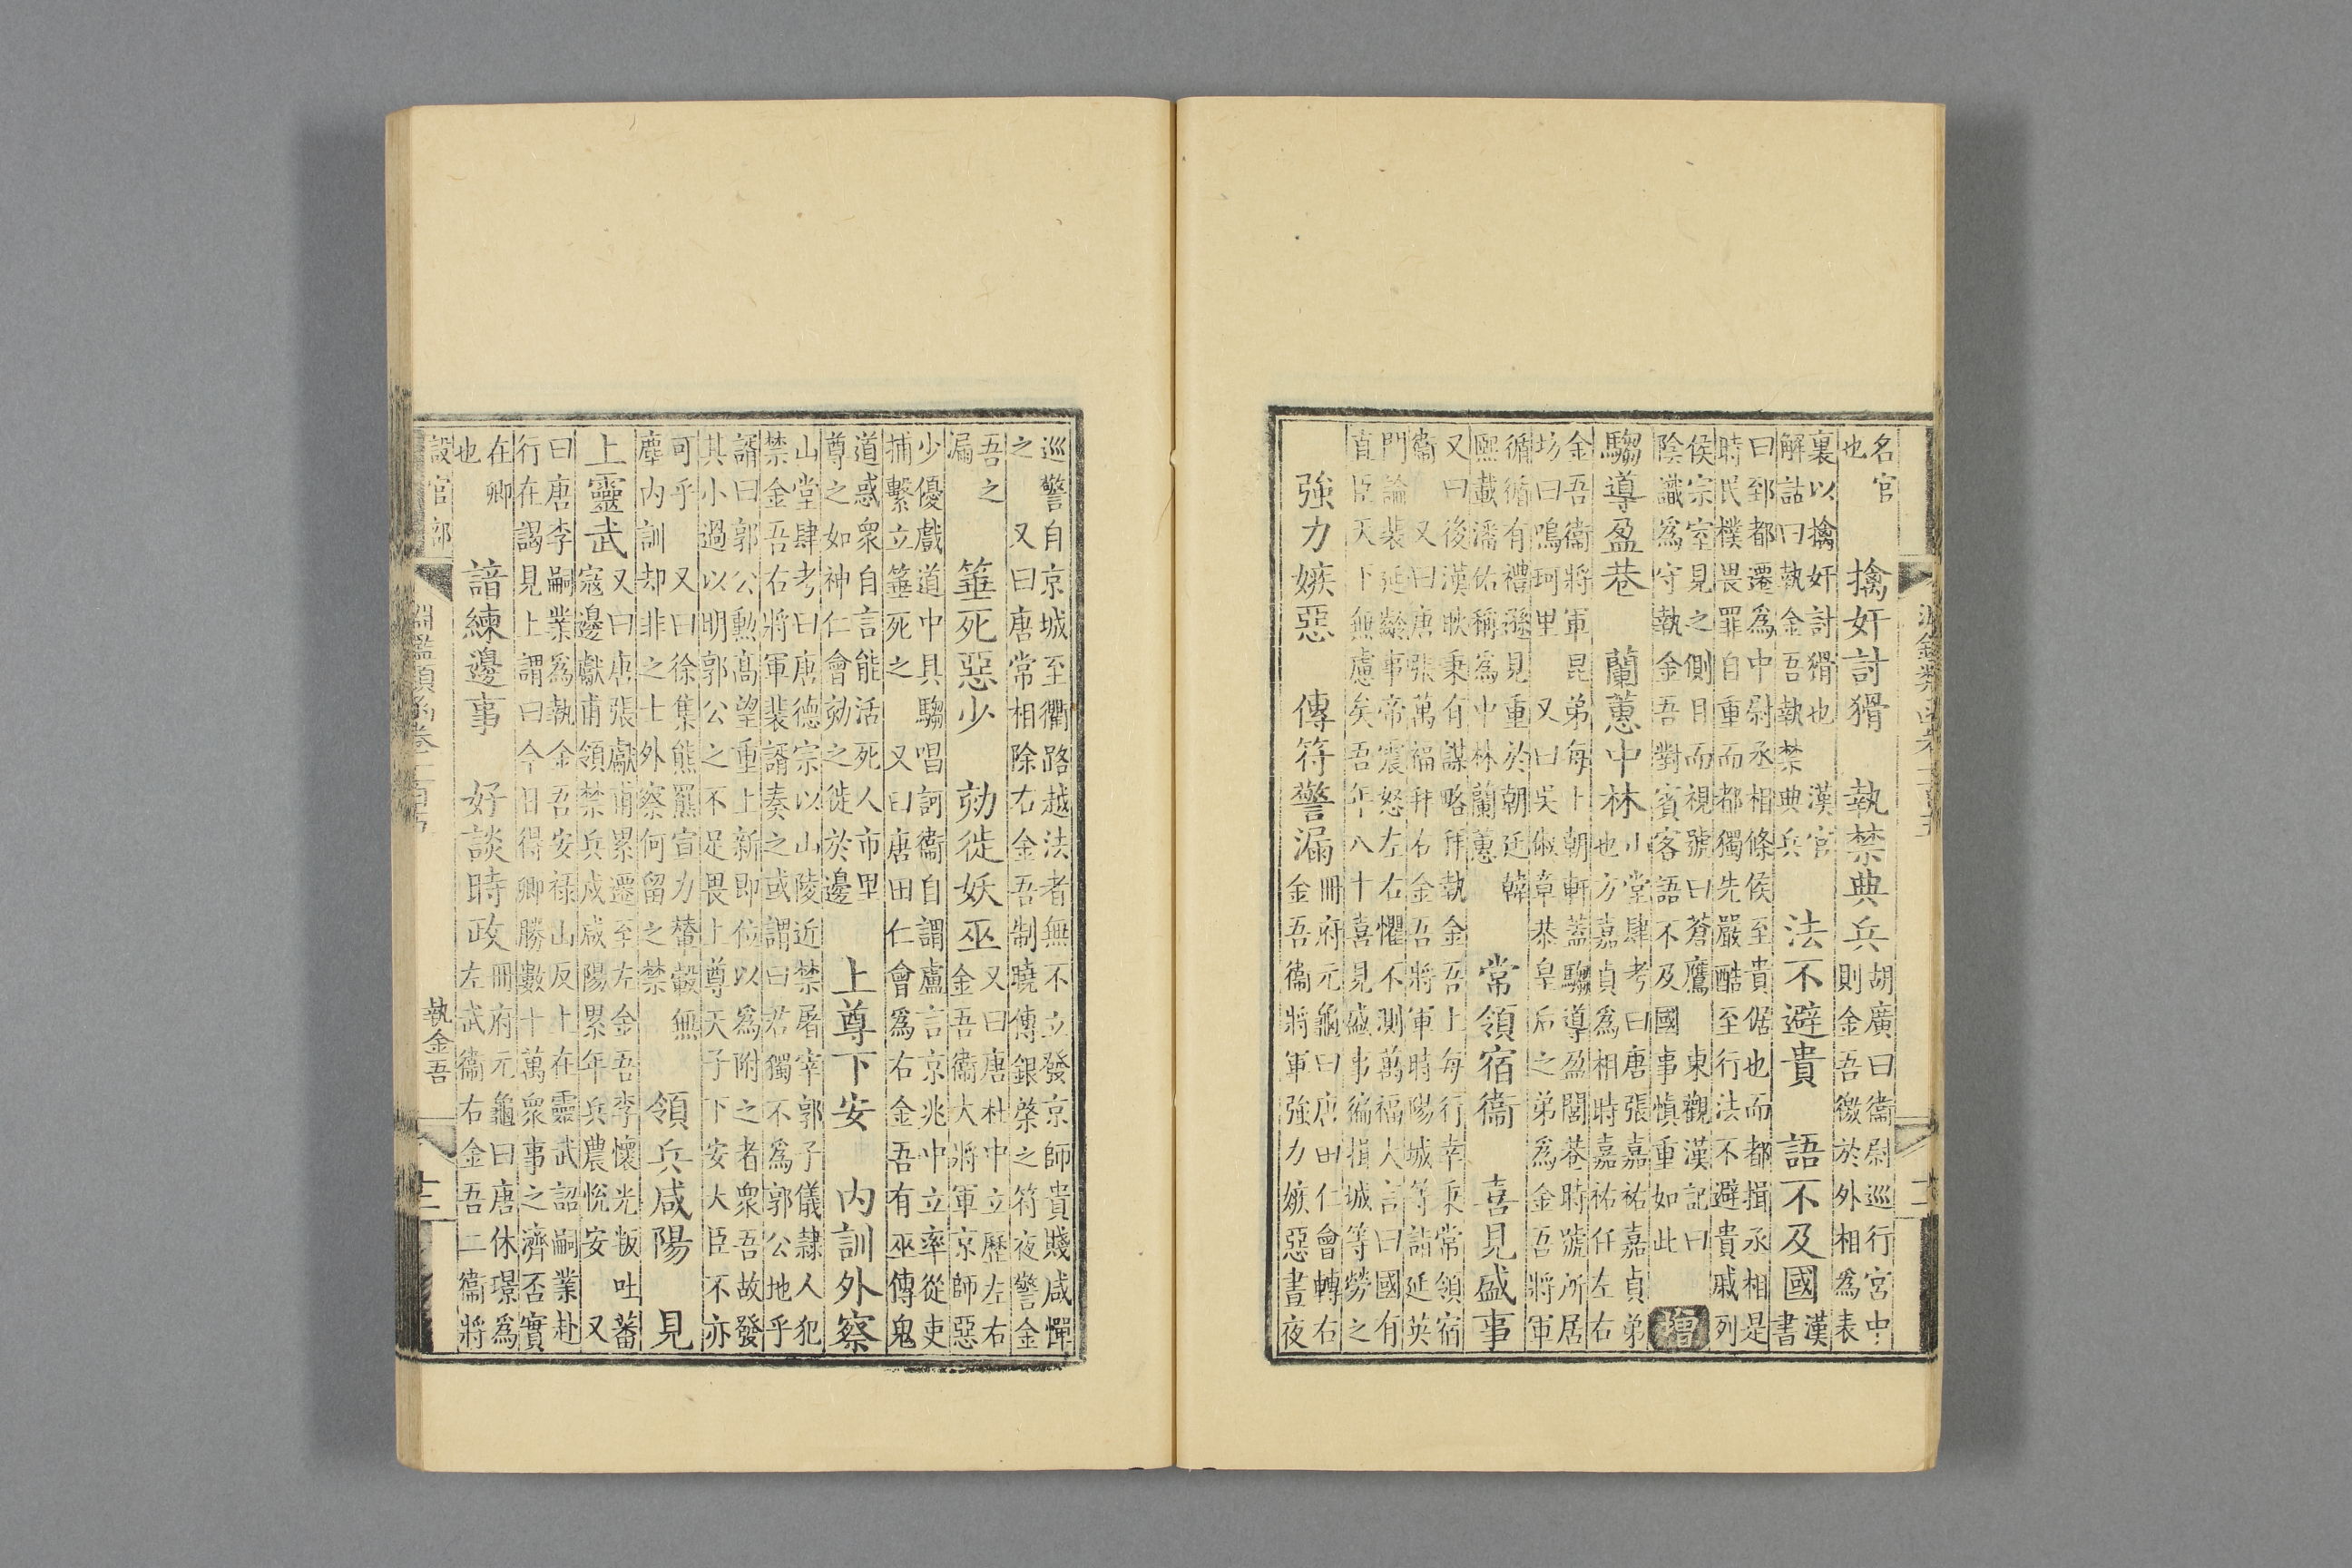 名官
也
擒奸討猾　執禁典兵
胡廣曰衞尉巡行宮中
則金吾徼於外相爲表
裏以擒奸討猾也　漢官
解詁曰執金吾執禁典兵
法不避貴　語不及國
漢
書
曰郅都遷爲中尉丞相條侯至貴倨也而都揖丞相是
時民樸畏罪自重而都獨先嚴酷至行法不避貴戚列
侯宗室見之側目而視號曰蒼鷹　東觀漢記曰
陰識爲守執金吾對賓客語不及國事慎重如此
增
騶導盈巷　蘭蕙中林
山堂肆考曰唐張嘉祐嘉貞弟
也方嘉貞爲相時嘉祐任左右
金吾衞將軍昆弟每上朝軒蓋騶導盈閭巷時號所居
坊曰鳴珂里　又曰吴俶章恭皇后之弟爲金吾將軍
循循有禮遜見重於朝廷韓
熙載潘佑稱爲中林蘭蕙
常領宿衞　喜見盛事
又曰後漢耿秉有謀略拜執金吾上每行幸秉常領宿
衞　又曰唐張萬福拜右金吾將軍時陽城等詣延英
門論裴延齡事帝震怒左右懼不測萬福大言曰國有
直臣天下無慮矣吾年八十喜見盛事徧揖城等勞之
強力嫉惡　傳符警漏
冊府元龜曰唐田仁會轉右
金吾衞將軍強力嫉惡晝夜
巡警自京城至衢路越法者無不立發京師貴賤咸憚
之　又曰唐常相除右金吾制曉傳銀棨之符夜警金
吾之
漏
箠死惡少　劾徙妖巫
又曰唐杜中立歷左右
金吾衞大將軍京師惡
少優戲道中具騶唱訶衞自謂盧言京兆中立率從吏
捕繫立箠死之　又曰唐田仁會爲右金吾有巫傳鬼
道惑衆自言能活死人市里
尊之如神仁會劾之徙於邊
上尊下安　内訓外察
山堂肆考曰唐德宗以山陵近禁屠宰郭子儀隷人犯
禁金吾右將軍裴諝奏之或謂曰君獨不爲郭公地乎
諝曰郭公勲髙望重上新即位以爲附之者衆吾故發
其小過以明郭公之不足畏上尊天子下安大臣不亦
可乎　又曰徐集熊羆宣力輦轂無
塵内訓却非之士外察何留之禁
領兵咸陽　見
上靈武
又曰唐張獻甫累遷至左金吾李懷光叛吐蕃
寇邊獻甫領禁兵戍咸陽累年兵農悅安　又
曰唐李嗣業爲執金吾安禄山反上在靈武詔嗣業赴
行在謁見上謂曰今日得卿勝數十萬衆事之濟否實
在卿
也
諳練邊事　好談時政
冊府元龜曰唐休璟爲
左武衞右金吾二衞將
設官部　淵鑑類函卷一百五　執金吾